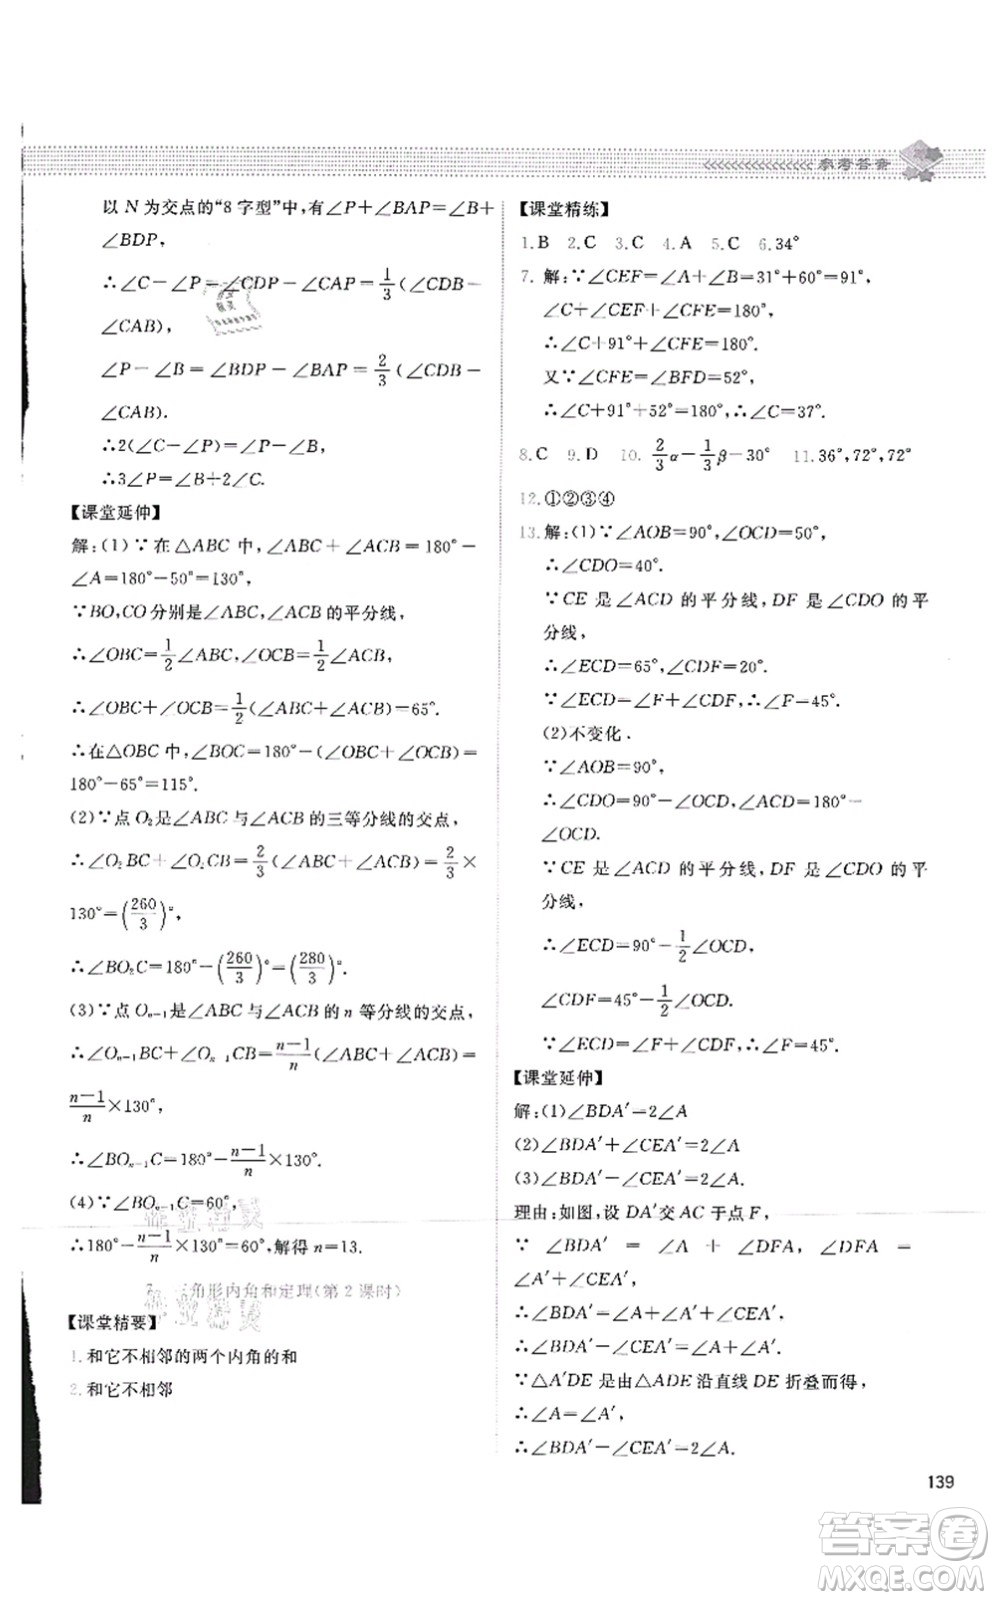 参考答案
以 N 为交点的“8 字型”中,有∠P+∠BAP=∠B+
∠BDP,
∴∠C-∠P=∠CDP-∠CAP=1/3(∠CDB-
∠CAB),
∠P-∠B=∠BDP-∠BAP=2/3(∠CDB-
∠CAB).
∴2(∠C-∠P)=∠P-∠B,
∴3∠P=∠B+2∠C.
【课堂延伸】
解:(1)∵在△ABC 中,∠ABC+∠ACB=180°-
∠A=180°-50°=130°,
∵BO,CO 分别是∠ABC,∠ACB 的平分线,
∴∠OBC=1/2∠ABC,∠OCB=1/2∠ACB,
∴∠OBC+∠OCB=1/2(∠ABC+∠ACB)=65°.
∴在△OBC 中,∠BOC=180°-(∠OBC+∠OCB)=
180°-65°=115°.
(2)∵点 O₂是∠ABC 与∠ACB 的三等分线的交点,
∴∠O₂BC+∠O₂CB=2/3(∠ABC+∠ACB)=2/3×
130°=(260/3)°,
∴∠BO₂C=180°-(260/3)°=(280/3)°.
(3)∵点 Oₙ₋₁是∠ABC 与∠ACB 的 n 等分线的交点,
∴∠Oₙ₋₁BC+∠Oₙ₋₁CB=n-1/n(∠ABC+∠ACB)=
n-1/n×130°,
∴∠BOₙ₋₁C=180°-n-1/n×130°.
(4)∵∠BOₙ₋₁C=60°,
∴180°-n-1/n×130°=60°,解得 n=13.
角形内角和定理(第 2 课时)
【课堂精要】
1.和它不相邻的两个内角的和
2.和它不相邻
【课堂精练】
1.B 2.C 3.C 4.A 5.C 6.34°
7.解:∵∠CEF=∠A+∠B=31°+60°=91°,
∠C+∠CEF+∠CFE=180°,
∴∠C+91°+∠CFE=180°.
又∵∠CFE=∠BFD=52°,
∴∠C+91°+52°=180°,∴∠C=37°.
8.C 9.D 10.2/3α-1/3β-30° 11.36°,72°,72°
12.①②③④
13.解:(1)∵∠AOB=90°,∠OCD=50°,
∴∠CDO=40°.
∵CE 是∠ACD 的平分线,DF 是∠CDO 的平
分线,
∴∠ECD=65°,∠CDF=20°.
∵∠ECD=∠F+∠CDF,∴∠F=45°.
(2)不变化.
∵∠AOB=90°,
∴∠CDO=90°-∠OCD,∠ACD=180°-
∠OCD.
∵CE 是∠ACD 的平分线,DF 是∠CDO 的平
分线,
∴∠ECD=90°-1/2∠OCD,
∠CDF=45°-1/2∠OCD.
∵∠ECD=∠F+∠CDF,∴∠F=45°.
【课堂延伸】
解:(1)∠BDA′=2∠A
(2)∠BDA′+∠CEA′=2∠A
(3)∠BDA′-∠CEA′=2∠A.
理由:如图,设 DA′交 AC 于点 F,
∵∠BDA′=∠A+∠DFA,∠DFA=
∠A′+∠CEA′,
∴∠BDA′=∠A+∠A′+∠CEA′,
∴∠BDA′-∠CEA′=∠A+∠A′.
∵△A′DE 是由△ADE 沿直线 DE 折叠而得,
∴∠A=∠A′,
∴∠BDA′-∠CEA′=2∠A.
139
答案卷
MXQE.COM